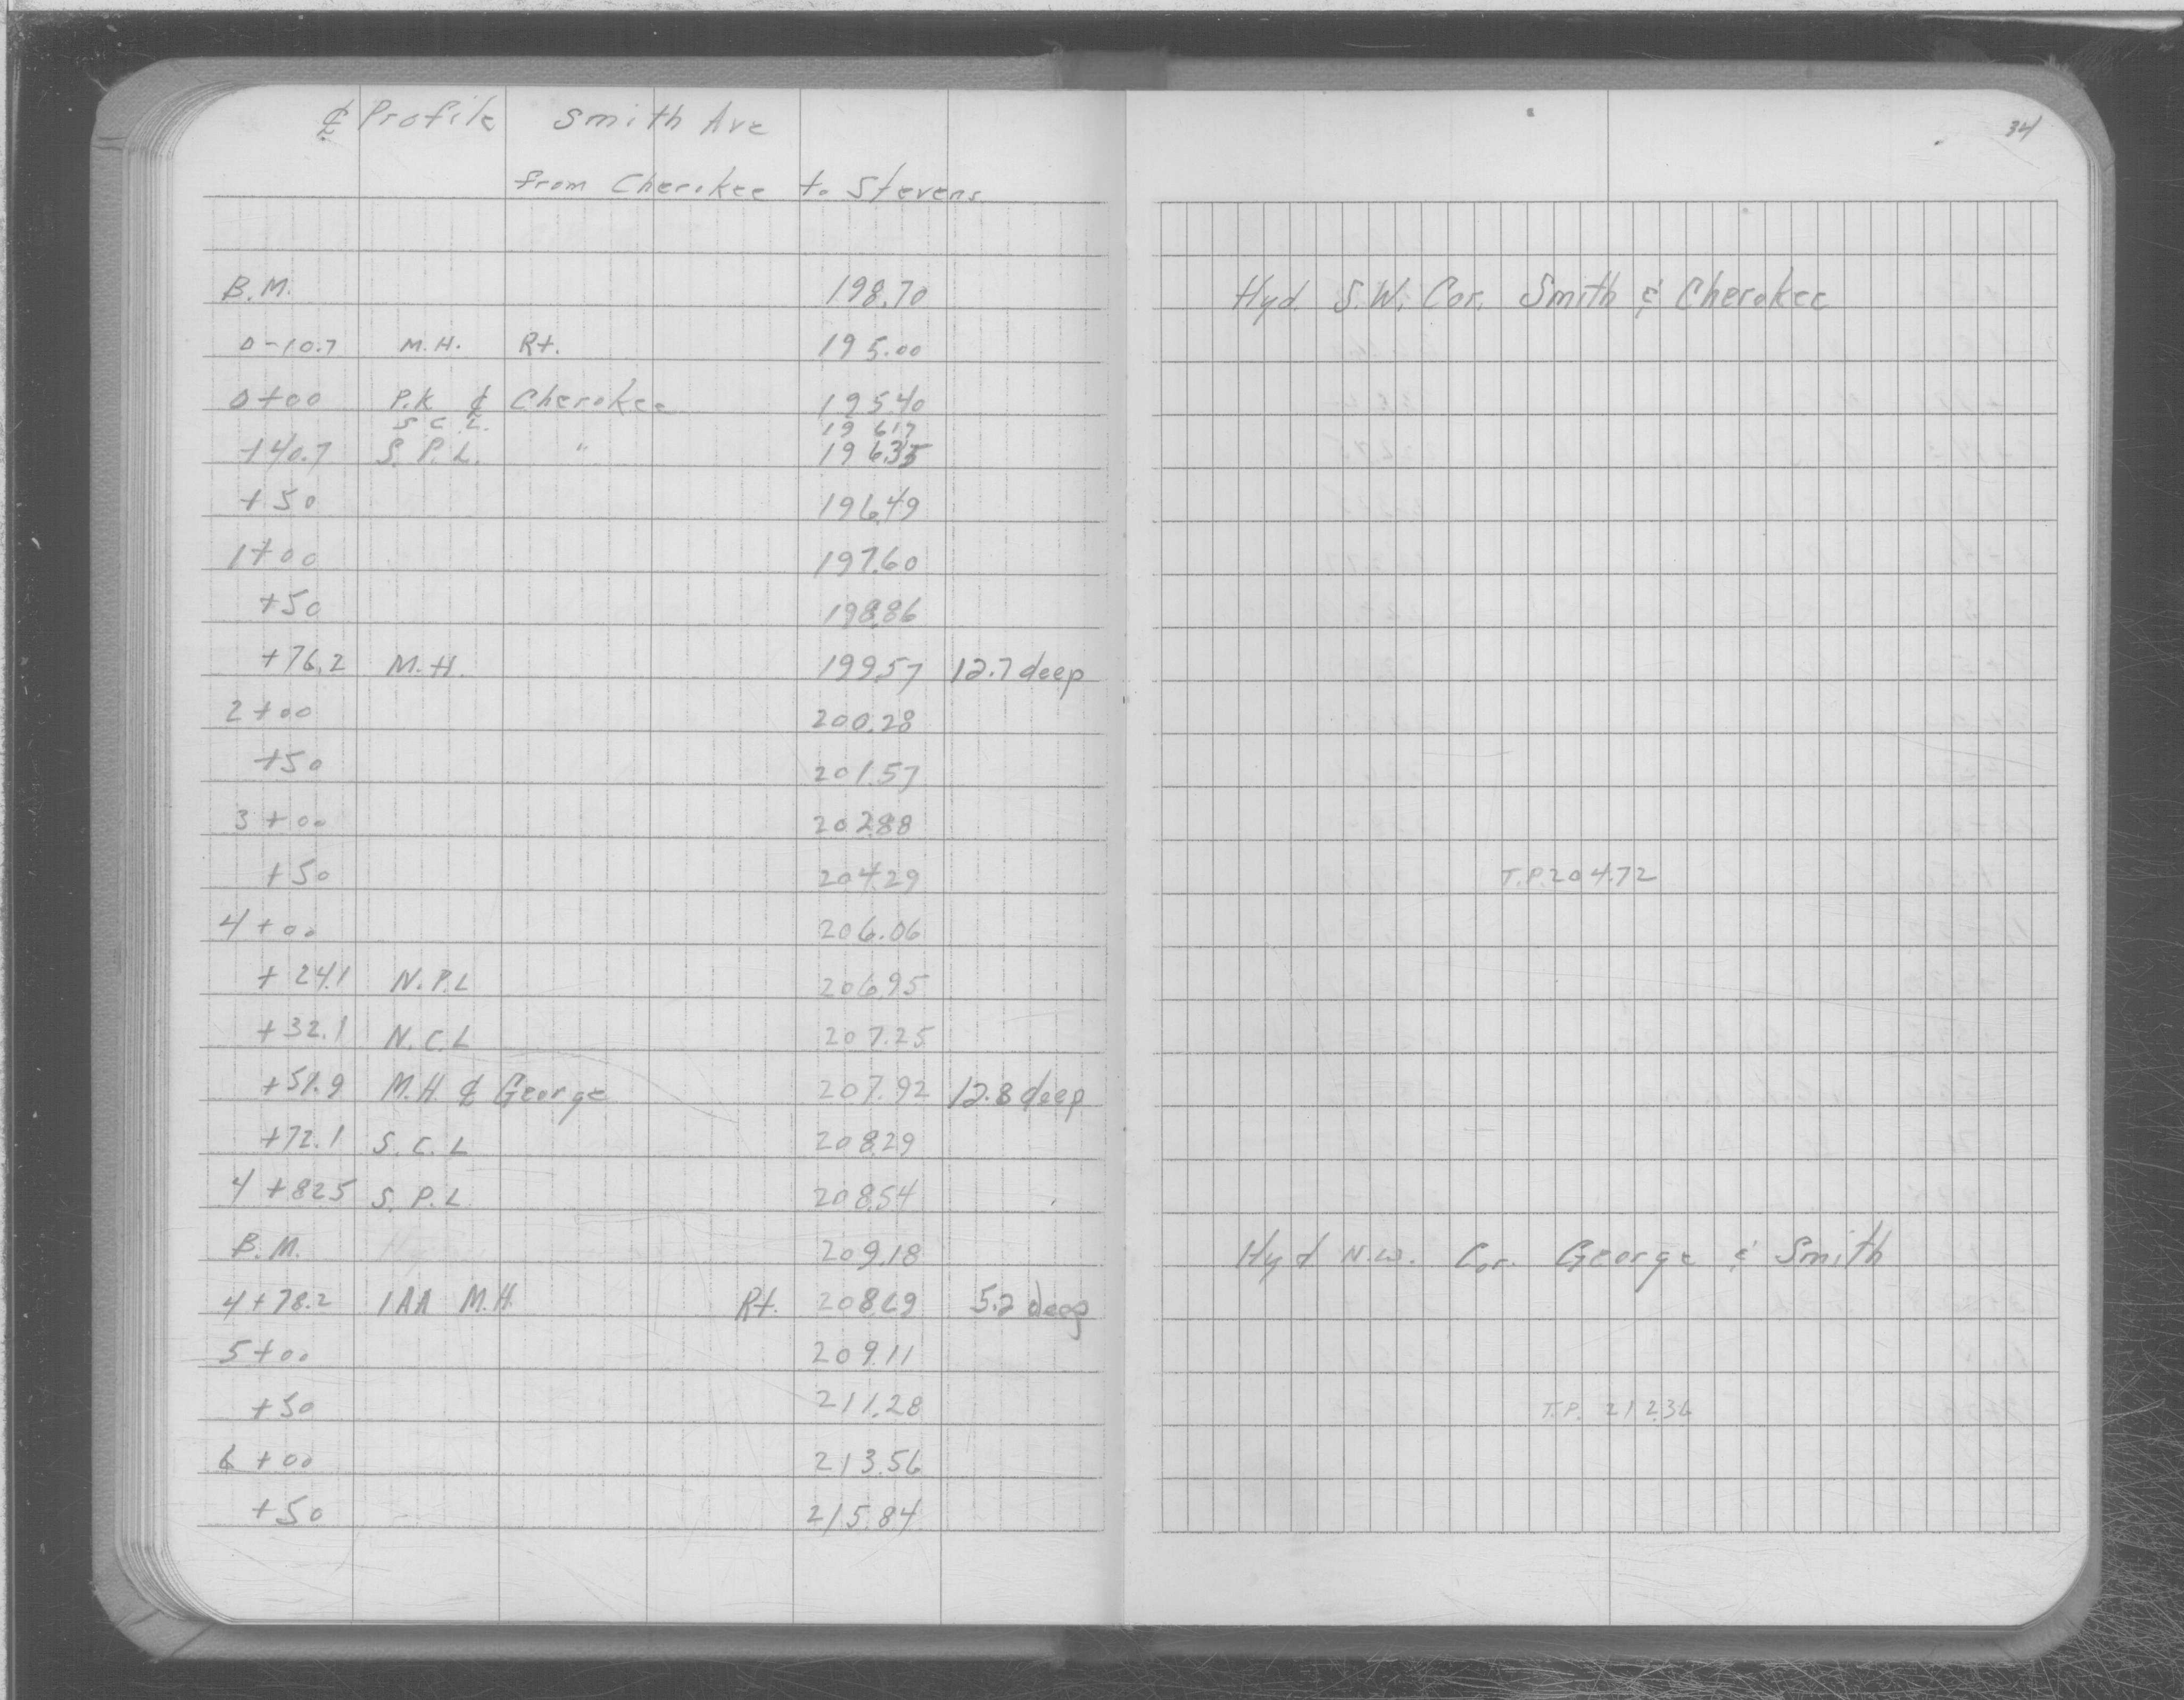 ℄ Profile Smith Ave
34
from Cherokee to Stevens
B.M. 198.70 Hyd. S.W. Cor. Smith & Cherokee
0-10.7 M.H. Rt. 195.00
0+00 P.K ℄ Cherokee 195.40
S C L. 196.17
+40.7 S. P.L. " 196.35
+50 196.49
1+00 197.60
+50 198.86
+76.2 M.H. 199.57 12.7 deep
2+00 200.28
+50 201.57
3+00 202.88
+50 204.29 T.P. 204.72
4+00 206.06
+24.1 N.P.L 206.95
+32.1 N.C.L 207.25
M.H. ℄ George 207.92 12.8 deep
+72.1 S.C.L 208.29
4+82.5 S.P.L. 208.54
B.M. 209.18 Hyd N.W. Cor. George & Smith
4+78.2 1AA M.H. Rt. 208.69 5.2 deep
5+00 209.11
+50 211.28 T.P. 212.36
6+00 213.56
+50 215.84